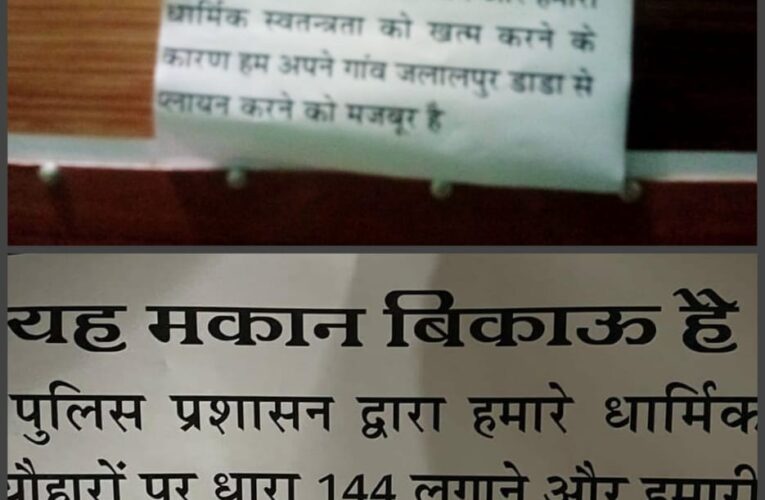 धार्मिक स्वतन्त्रता को खत्म करने के
कारण हम अपने गांव जलालपुर डाडा से
प्लायन करने को मजबूर है
यह मकान बिकाऊ है
पुलिस प्रशासन द्वारा हमारे धार्मिक
पर धारा 144 लगाने और हमारी